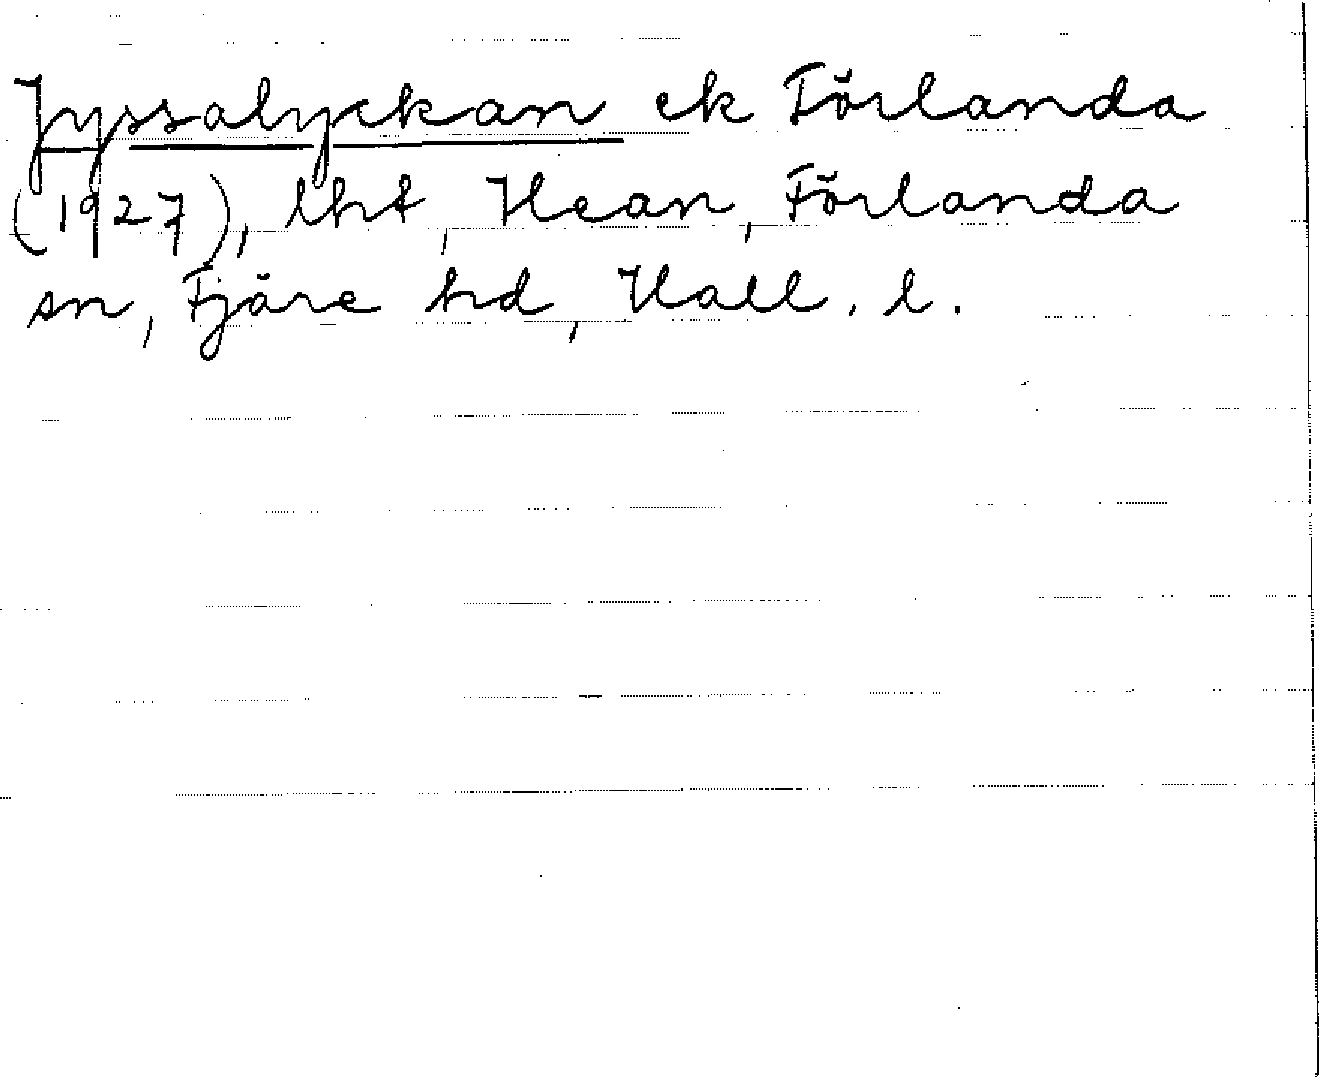 Jyssalyckan ek Förlanda
(1927), lht, Hean, Förlanda
sn, Fjäre hd, Hall. l.